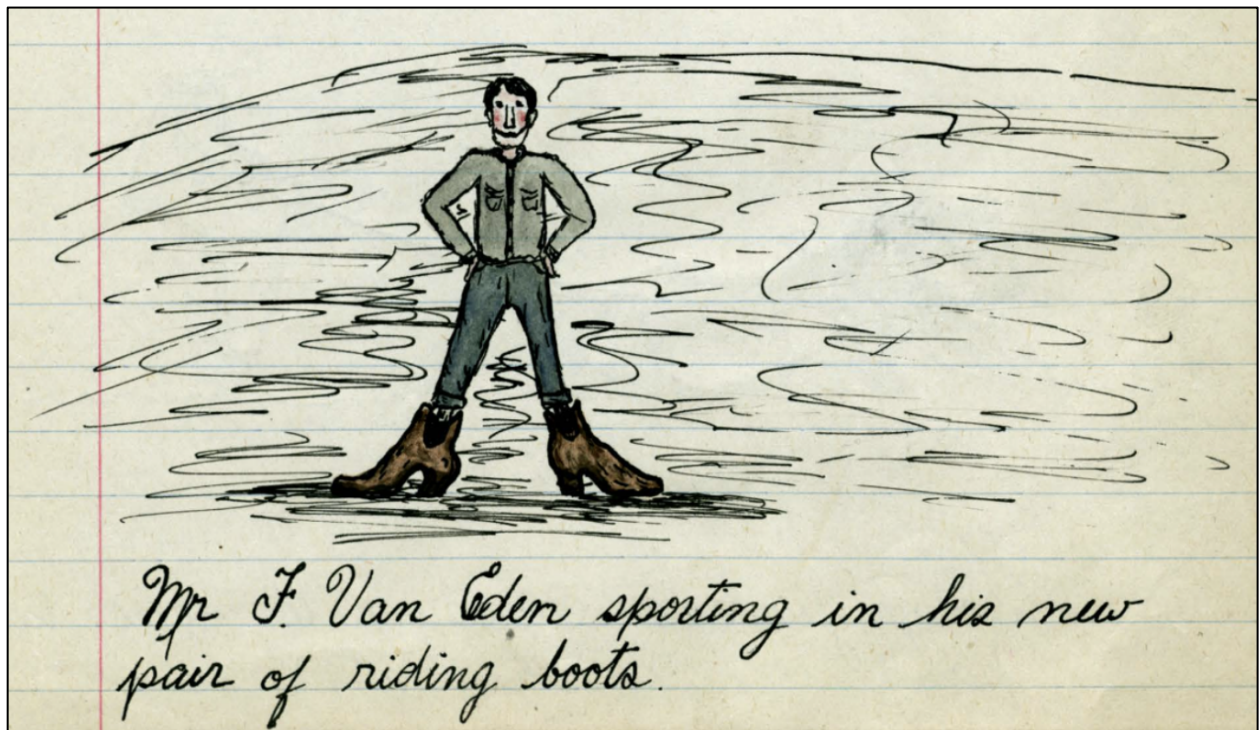 Mr F. Van Eden sporting in his new
pair of riding boots.